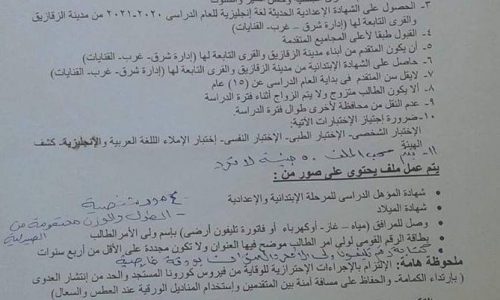 ٣- الحصول على الشهادة الإعدادية الحديثة لغة إنجليزية للعام الدراسى ٢٠٢٠-٢٠٢١ من مدينة الزقازيق
والقرى التابعة لها (إدارة شرق – غرب- القنايات)
٤- القبول طبقا لأعلى المجاميع المتقدمة
٥- أن يكون المتقدم من أبناء مدينة الزقازيق والقرى التابعة لها (إدارة شرق- غرب- القنايات)
٦- حاصل على الشهادة الإبتدائية من مدينة الزقازيق والقرى التابعة لها (إدارة شرق- غرب- القنايات)
٧- لايقل سن المتقدم فى بداية العام الدراسى عن (١٥) عام
٨- ألا يكون الطالب متزوج ولا يتم الزواج أثناء فترة الدراسة
٩- عدم النقل من محافظة لأخرى طوال فترة الدراسة
١٠- ضرورة إجتياز الإختبارات الآتية:
الإختبار الشخصى- الإختبار الطبى- الإختبار النفسى- إختبار الإملاء اللغة العربية والإنجليزية- كشف
الهيئة
١١- يتم سحب الملف ٥٠ جنية
يتم عمل ملف يحتوى على صور من :
شهادة المؤهل الدراسى للمرحلة الإبتدائية والإعدادية
الطول والوزن مختومة من
الصيدلية
شهادة الميلاد
وصل للمرافق (مياه – غاز- أوكهرباء أو فاتورة تليفون أرضى) بإسم ولى الأمر الطالب
بطاقة الرقم القومى لولى أمر الطالب موضح فيها العنوان ولا تكون مجددة على الأقل من أربع سنوات
ملحوظة هامة: الإلتزام بالإجراءات الإحترازية للوقاية من فيروس كورونا المستجد والحد من إنتشار العدوى
( بإرتداء الكمامة- والحفاظ على مسافة آمنة بين المتقدمين وإستخدام المناديل الورقية عند العطس والسعال)